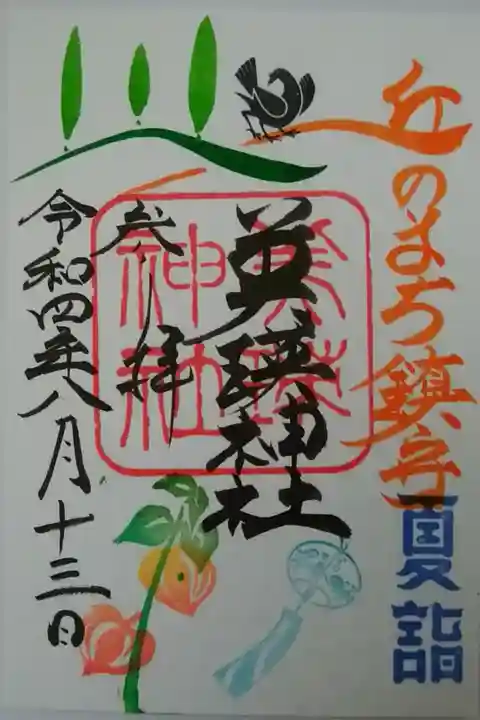 丘のまち鎮守
夏詣
美瑛神社
美瑛
神社
参拝
令和四年八月十三日